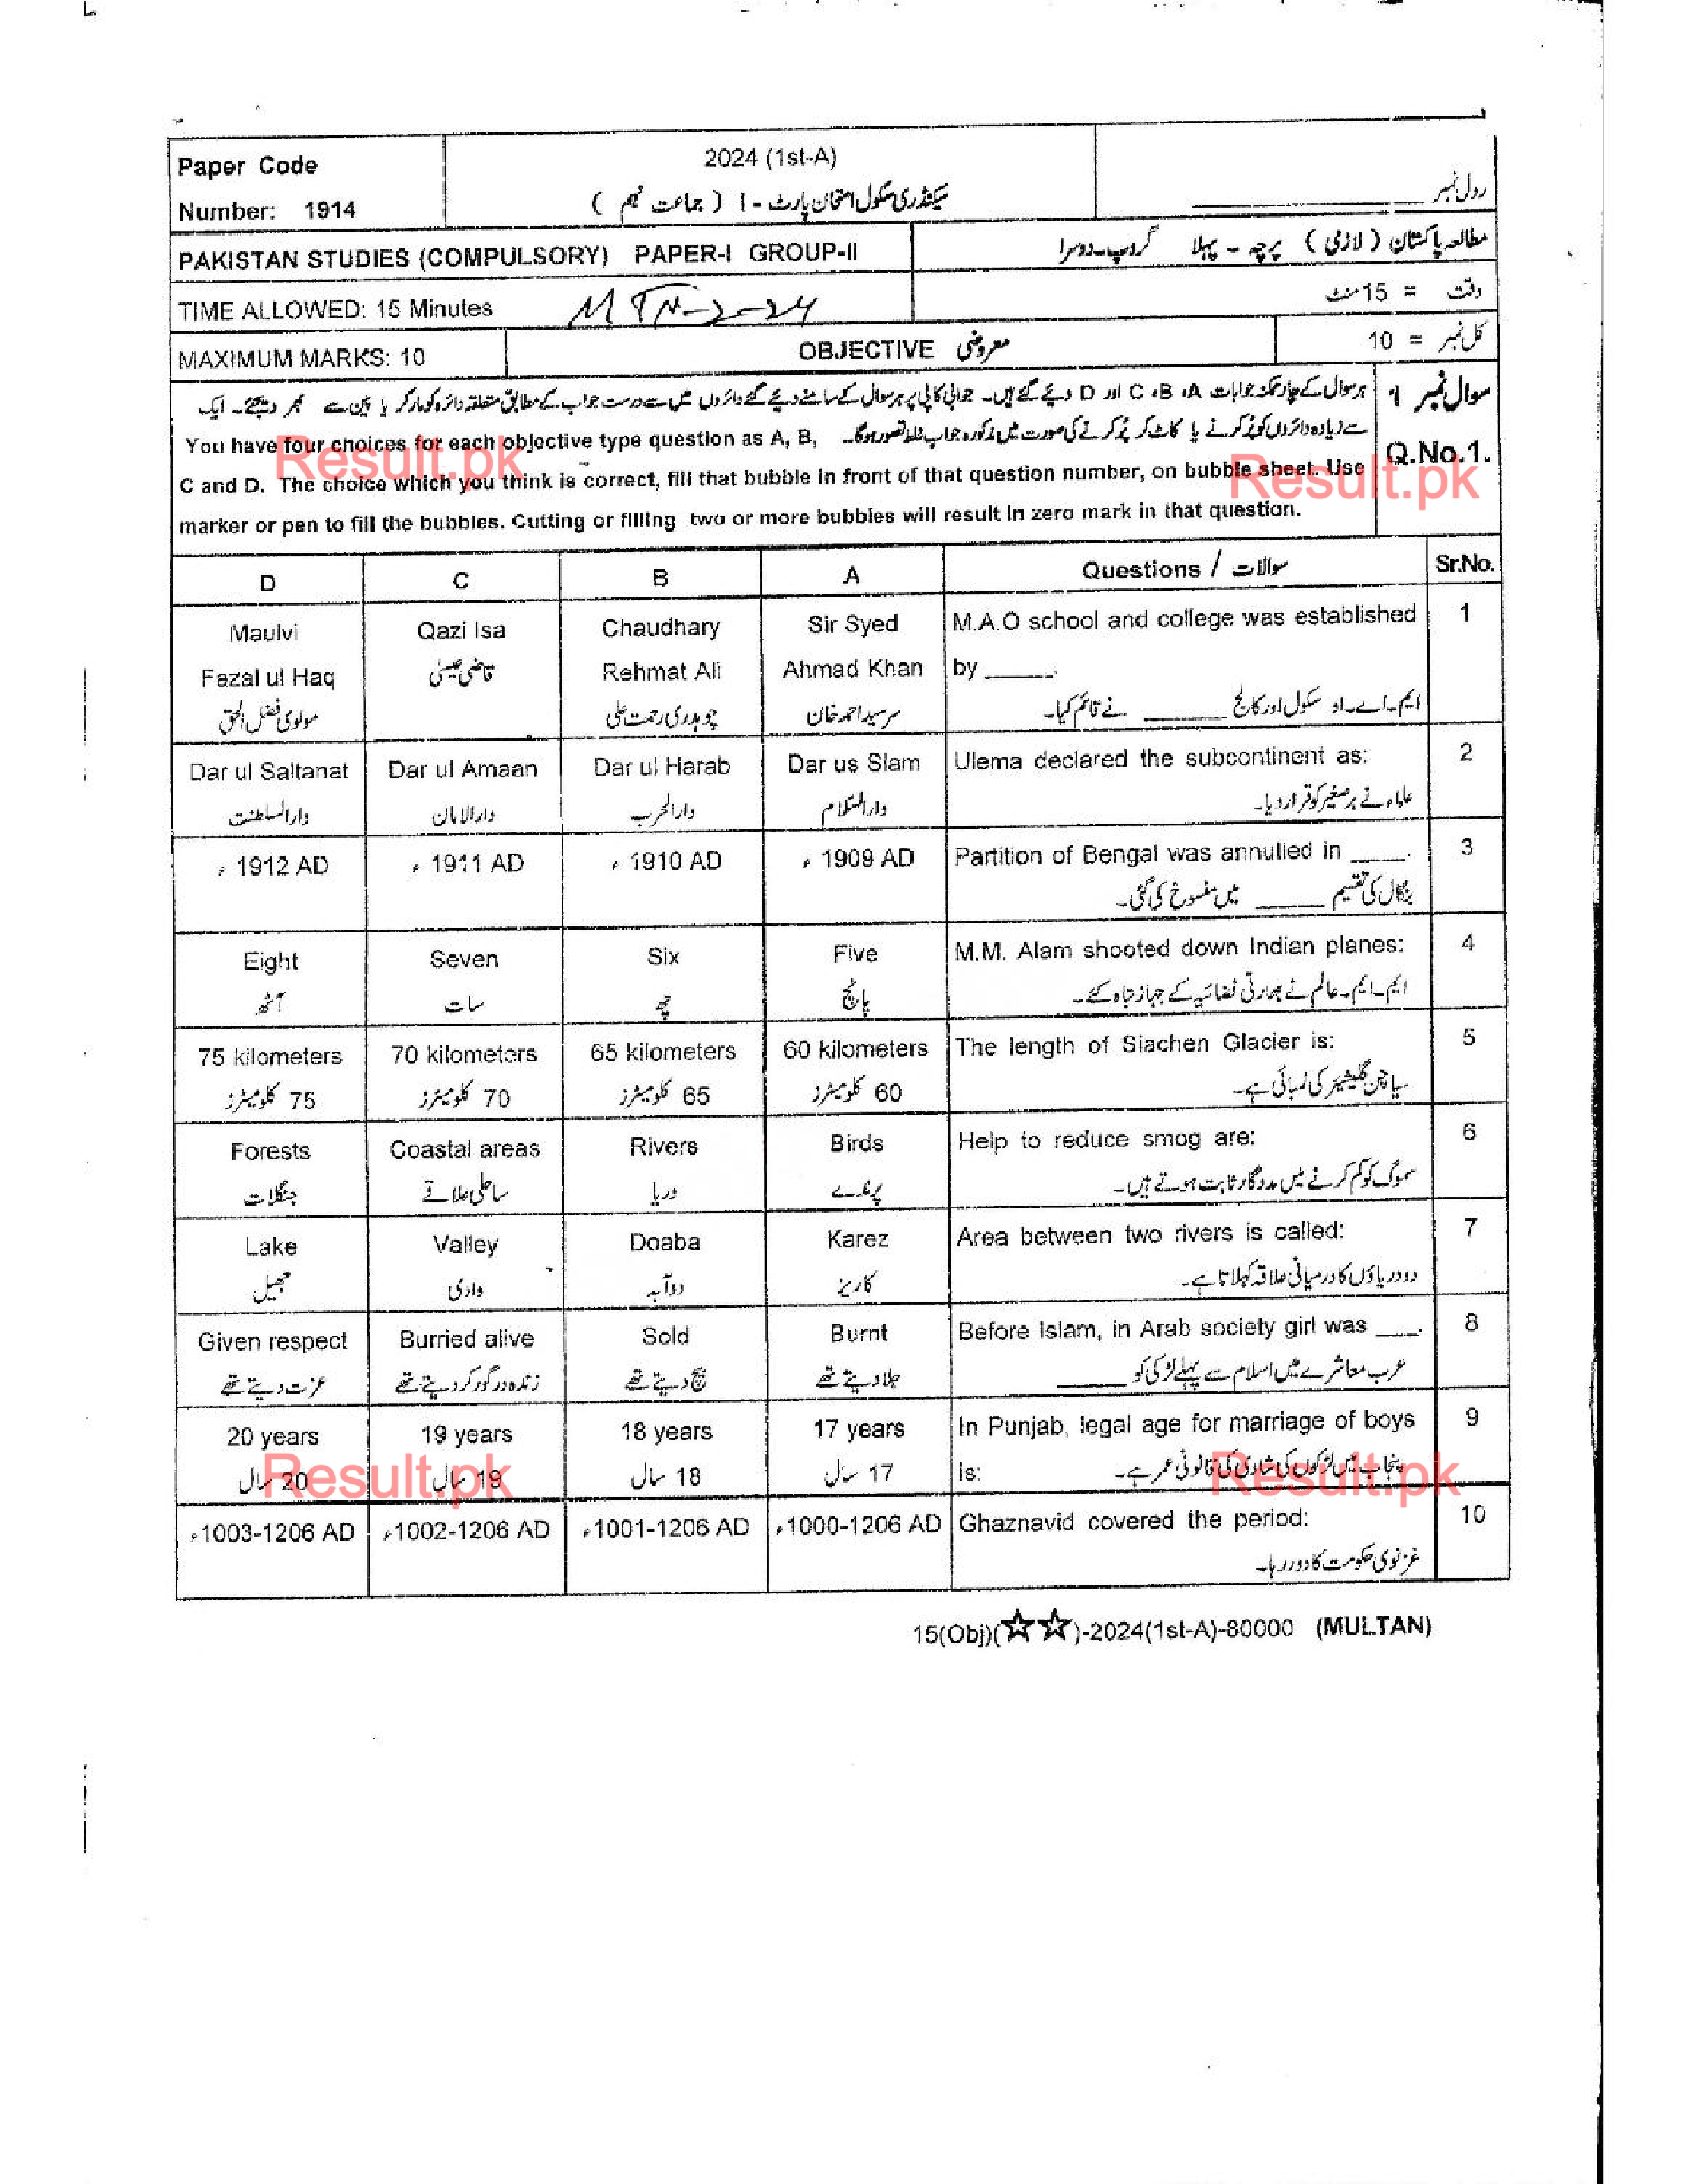 Paper Code
Number: 1914
2024 (1st-A)
سیکنڈری سکول امتحان پارٹ - I ( جماعت نہم )
رول نمبر
PAKISTAN STUDIES (COMPULSORY) PAPER-I GROUP-II
مطالعہ پاکستان ( لازمی ) پرچہ - پہلا گروپ-دوسرا
TIME ALLOWED: 15 Minutes
MTN-2-24
وقت = 15 منٹ
MAXIMUM MARKS: 10
OBJECTIVE معروضی
کل نمبر = 10
سوال نمبر 1
Q.No.1.
ہر سوال کے چار ممکنہ جوابات A، B، C اور D دیئے گئے ہیں۔ جوابی کاپی پر ہر سوال کے سامنے دیئے گئے دائروں میں سے درست جواب کے مطابق متعلقہ دائرہ کو مارکر یا پین سے بھر دیجئے۔ ایک
سے زیادہ دائروں کو پُر کرنے یا کاٹ کر پُر کرنے کی صورت میں مذکورہ جواب غلط تصور ہوگا۔
You have four choices for each objective type question as A, B,
C and D. The choice which you think is correct, fill that bubble in front of that question number, on bubble sheet. Use
marker or pen to fill the bubbles. Cutting or filling two or more bubbles will result in zero mark in that question.
Result.pk
Result.pk
D C B A Questions / سوالات Sr.No.
Maulvi Fazal ul Haq
مولوی فضل الحق
Qazi Isa
قاضی عیسیٰ
Chaudhary Rehmat Ali
چوہدری رحمت علی
Sir Syed Ahmad Khan
سرسید احمد خان
M.A.O school and college was established
by ______.
1
ایم۔اے۔او سکول اور کالج ______ نے قائم کیا۔
Dar ul Saltanat Dar ul Amaan Dar ul Harab Dar us Slam Ulema declared the subcontinent as: 2
دارالسلطنت دارالامان دارالحرب دارالسّلام علماء نے برصغیر کو قرار دیا۔
1912 AD ء 1911 AD ء 1910 AD ء 1909 AD ء Partition of Bengal was annulled in ____. 3
بنگال کی تقسیم ______ میں منسوخ کی گئی۔
Eight Seven Six Five M.M. Alam shooted down Indian planes: 4
آٹھ سات چھ پانچ ایم-ایم-عالم نے بھارتی فضائیہ کے جہاز تباہ کئے۔
75 kilometers 70 kilometers 65 kilometers 60 kilometers The length of Siachen Glacier is: 5
75 کلومیٹرز 70 کلومیٹرز 65 کلومیٹرز 60 کلومیٹرز سیاچن گلیشیئر کی لمبائی ہے۔
Forests Coastal areas Rivers Birds Help to reduce smog are: 6
جنگلات ساحلی علاقے دریا پرندے سموگ کو کم کرنے میں مددگار ثابت ہوتے ہیں۔
Lake Valley Doaba Karez Area between two rivers is called: 7
جھیل وادی دوآبہ کاریز دو دریاؤں کا درمیانی علاقہ کہلاتا ہے۔
Given respect Burried alive Sold Burnt Before Islam, in Arab society girl was ____. 8
عزت دیتے تھے زندہ درگور کر دیتے تھے بیچ دیتے تھے جلا دیتے تھے عرب معاشرے میں اسلام سے پہلے لڑکی کو ______
20 years 19 years 18 years 17 years In Punjab, legal age for marriage of boys 9
is:
20 سال 19 سال 18 سال 17 سال پنجاب میں لڑکوں کی شادی کی قانونی عمر ہے۔
Result.pk
Result.pk
1003-1206 AD ء 1002-1206 AD ء 1001-1206 AD ء 1000-1206 AD ء Ghaznavid covered the period: 10
غزنوی حکومت کا دور رہا۔
15(Obj)(☆☆)-2024(1st-A)-80000 (MULTAN)